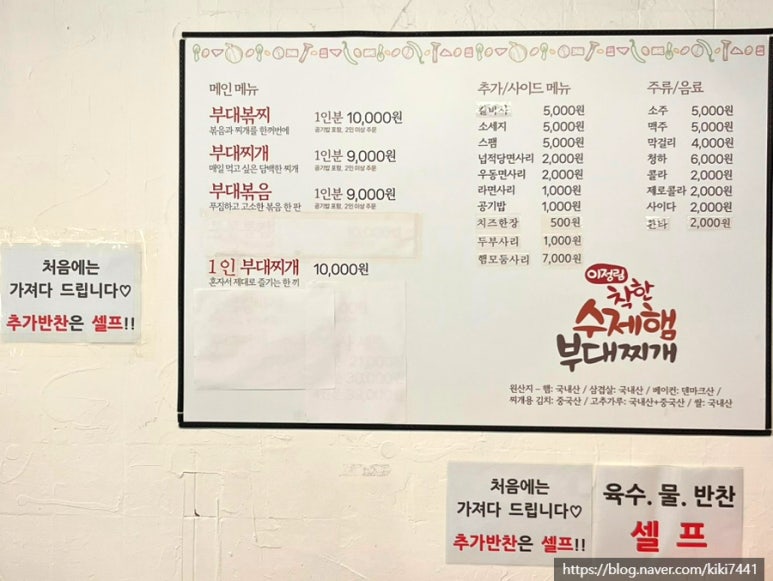 메인 메뉴
부대볶찌 1인분 10,000원
볶음과 찌개를 한꺼번에 공기밥 포함, 2인 이상 주문
부대찌개 1인분 9,000원
매일 먹고 싶은 담백한 찌개 공기밥 포함, 2인 이상 주문
부대볶음 1인분 9,000원
푸짐하고 고소한 볶음 한 판 공기밥 포함, 2인 이상 주문
1인 부대찌개 10,000원
혼자서 제대로 즐기는 한 끼
추가/사이드 메뉴
5,000원
소세지 5,000원
스팸 5,000원
넙적당면사리 2,000원
우동면사리 2,000원
라면사리 1,000원
공기밥 1,000원
치즈한장 500원
두부사리 1,000원
햄모둠사리 7,000원
주류/음료
소주 5,000원
맥주 5,000원
막걸리 4,000원
청하 6,000원
콜라 2,000원
제로콜라 2,000원
사이다 2,000원
환타 2,000원
이정림
착한
수제햄
부대찌개
원산지 – 햄: 국내산 / 삼겹살: 국내산 / 베이컨: 덴마크산 /
찌개용 김치: 중국산 / 고추가루: 국내산+중국산 / 쌀: 국내산
처음에는
가져다 드립니다♡
추가반찬은 셀프!!
처음에는
가져다 드립니다♡
추가반찬은 셀프!!
육수. 물. 반찬
셀 프
https://blog.naver.com/kiki7441